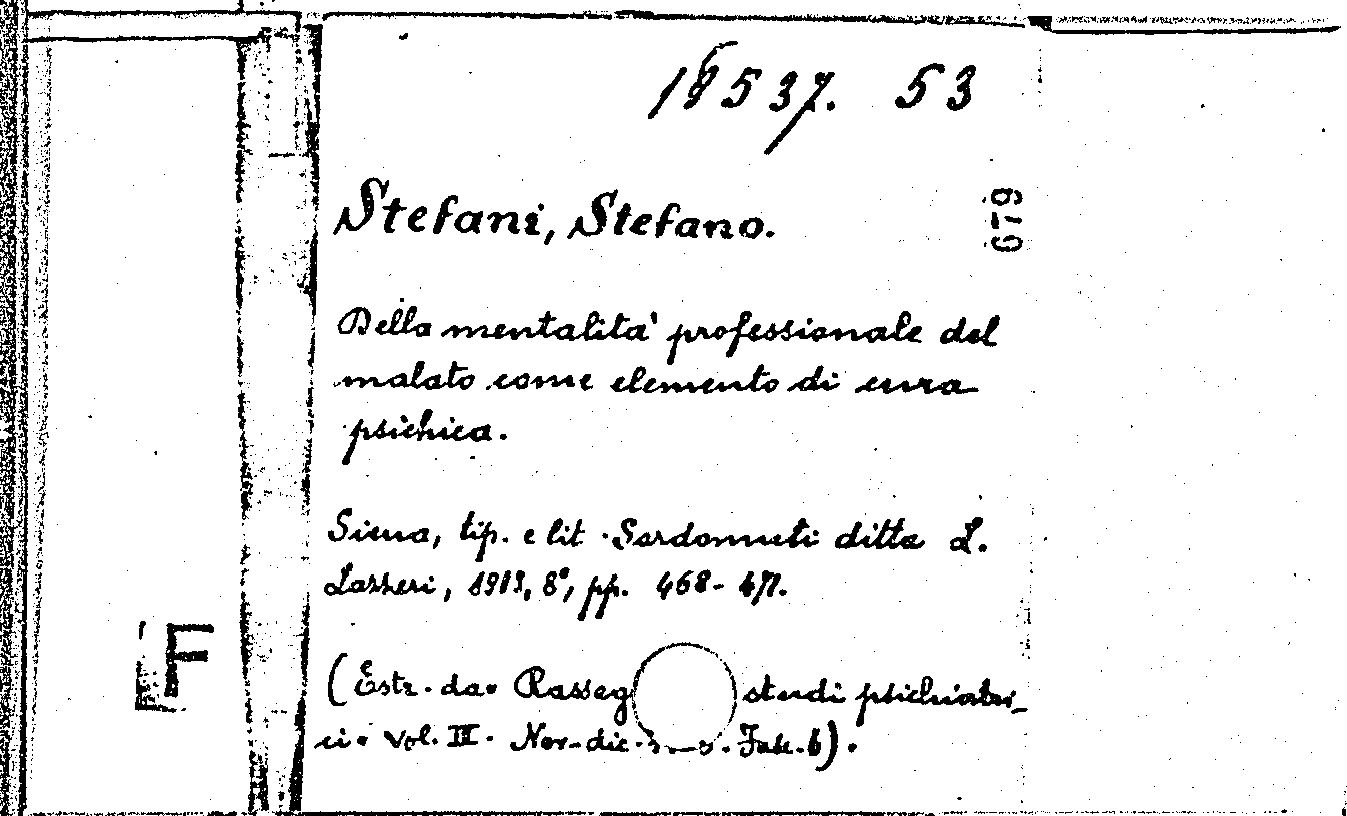 537. 53
Stefani, Stefano.
679
Della mentalità professionale del
malato come elemento di cura
psichica.
Siena, tip. e lit. Sordomuti ditta L.
Lazzeri, 1913, 8°, pp. 468-471.
(Estr. da. Rasseg studi psichiatri_
ci. vol. III. Nov-dic. Fasc. 6).
F